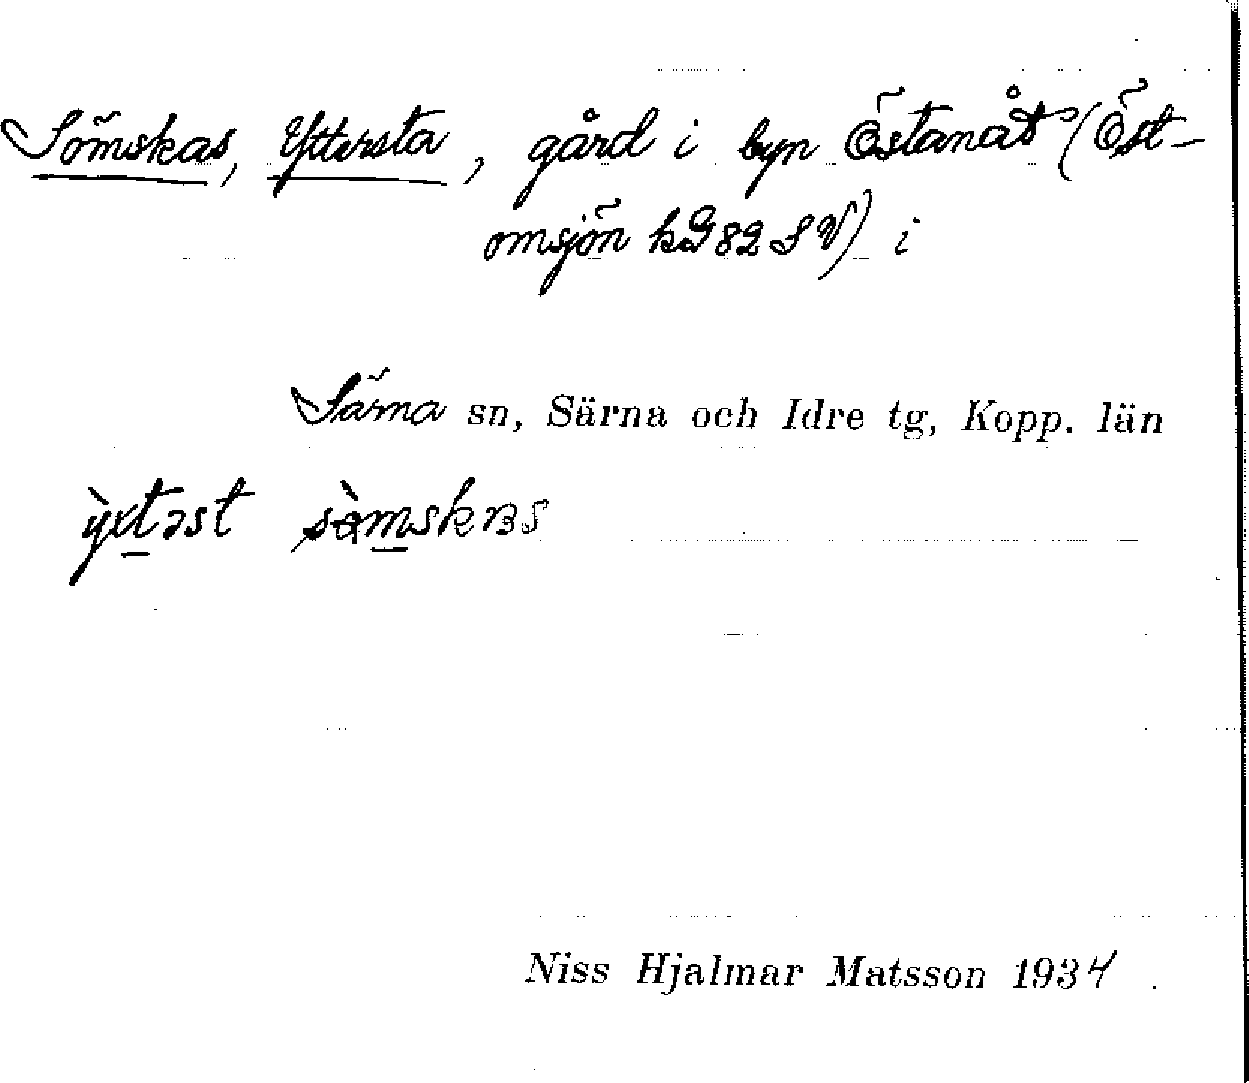 Sömskas, Yttersta, gård i byn Östanåt (Öst-
omsjön kG 82 SV) i
Särna sn, Särna och Idre tg, Kopp. län
Niss Hjalmar Matsson 1934.